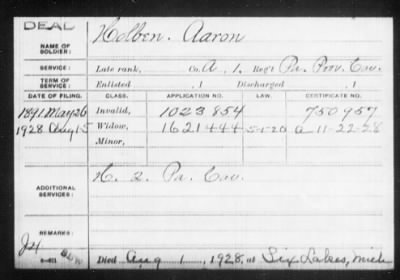 DEAL
NAME OF SOLDIER: Holben. Aaron
SERVICE: Late rank, Co. A, 1, Reg't Pa. Prov. Cav.
TERM OF SERVICE: Enlisted , 1 Discharged , 1
DATE OF FILING. CLASS. APPLICATION NO. LAW. CERTIFICATE NO.
1891 May 26 Invalid, 1023854 750957
1928 Aug 15 Widow, 1621444 5-1-20 a 11-22-28
Minor,
ADDITIONAL SERVICES: H. 2. Pa. Cav.
REMARKS:
Died Aug 1, 1928, at Six Lakes, Mich